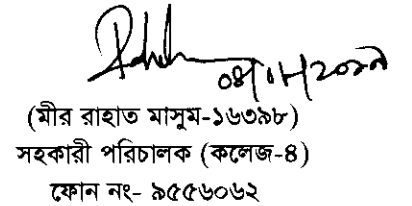 ০৪/১১/২০১৯
(মীর রাহাত মাসুম-১৬৩৯৮)
সহকারী পরিচালক (কলেজ-৪)
ফোন নং- ৯৫৫৬০৬২